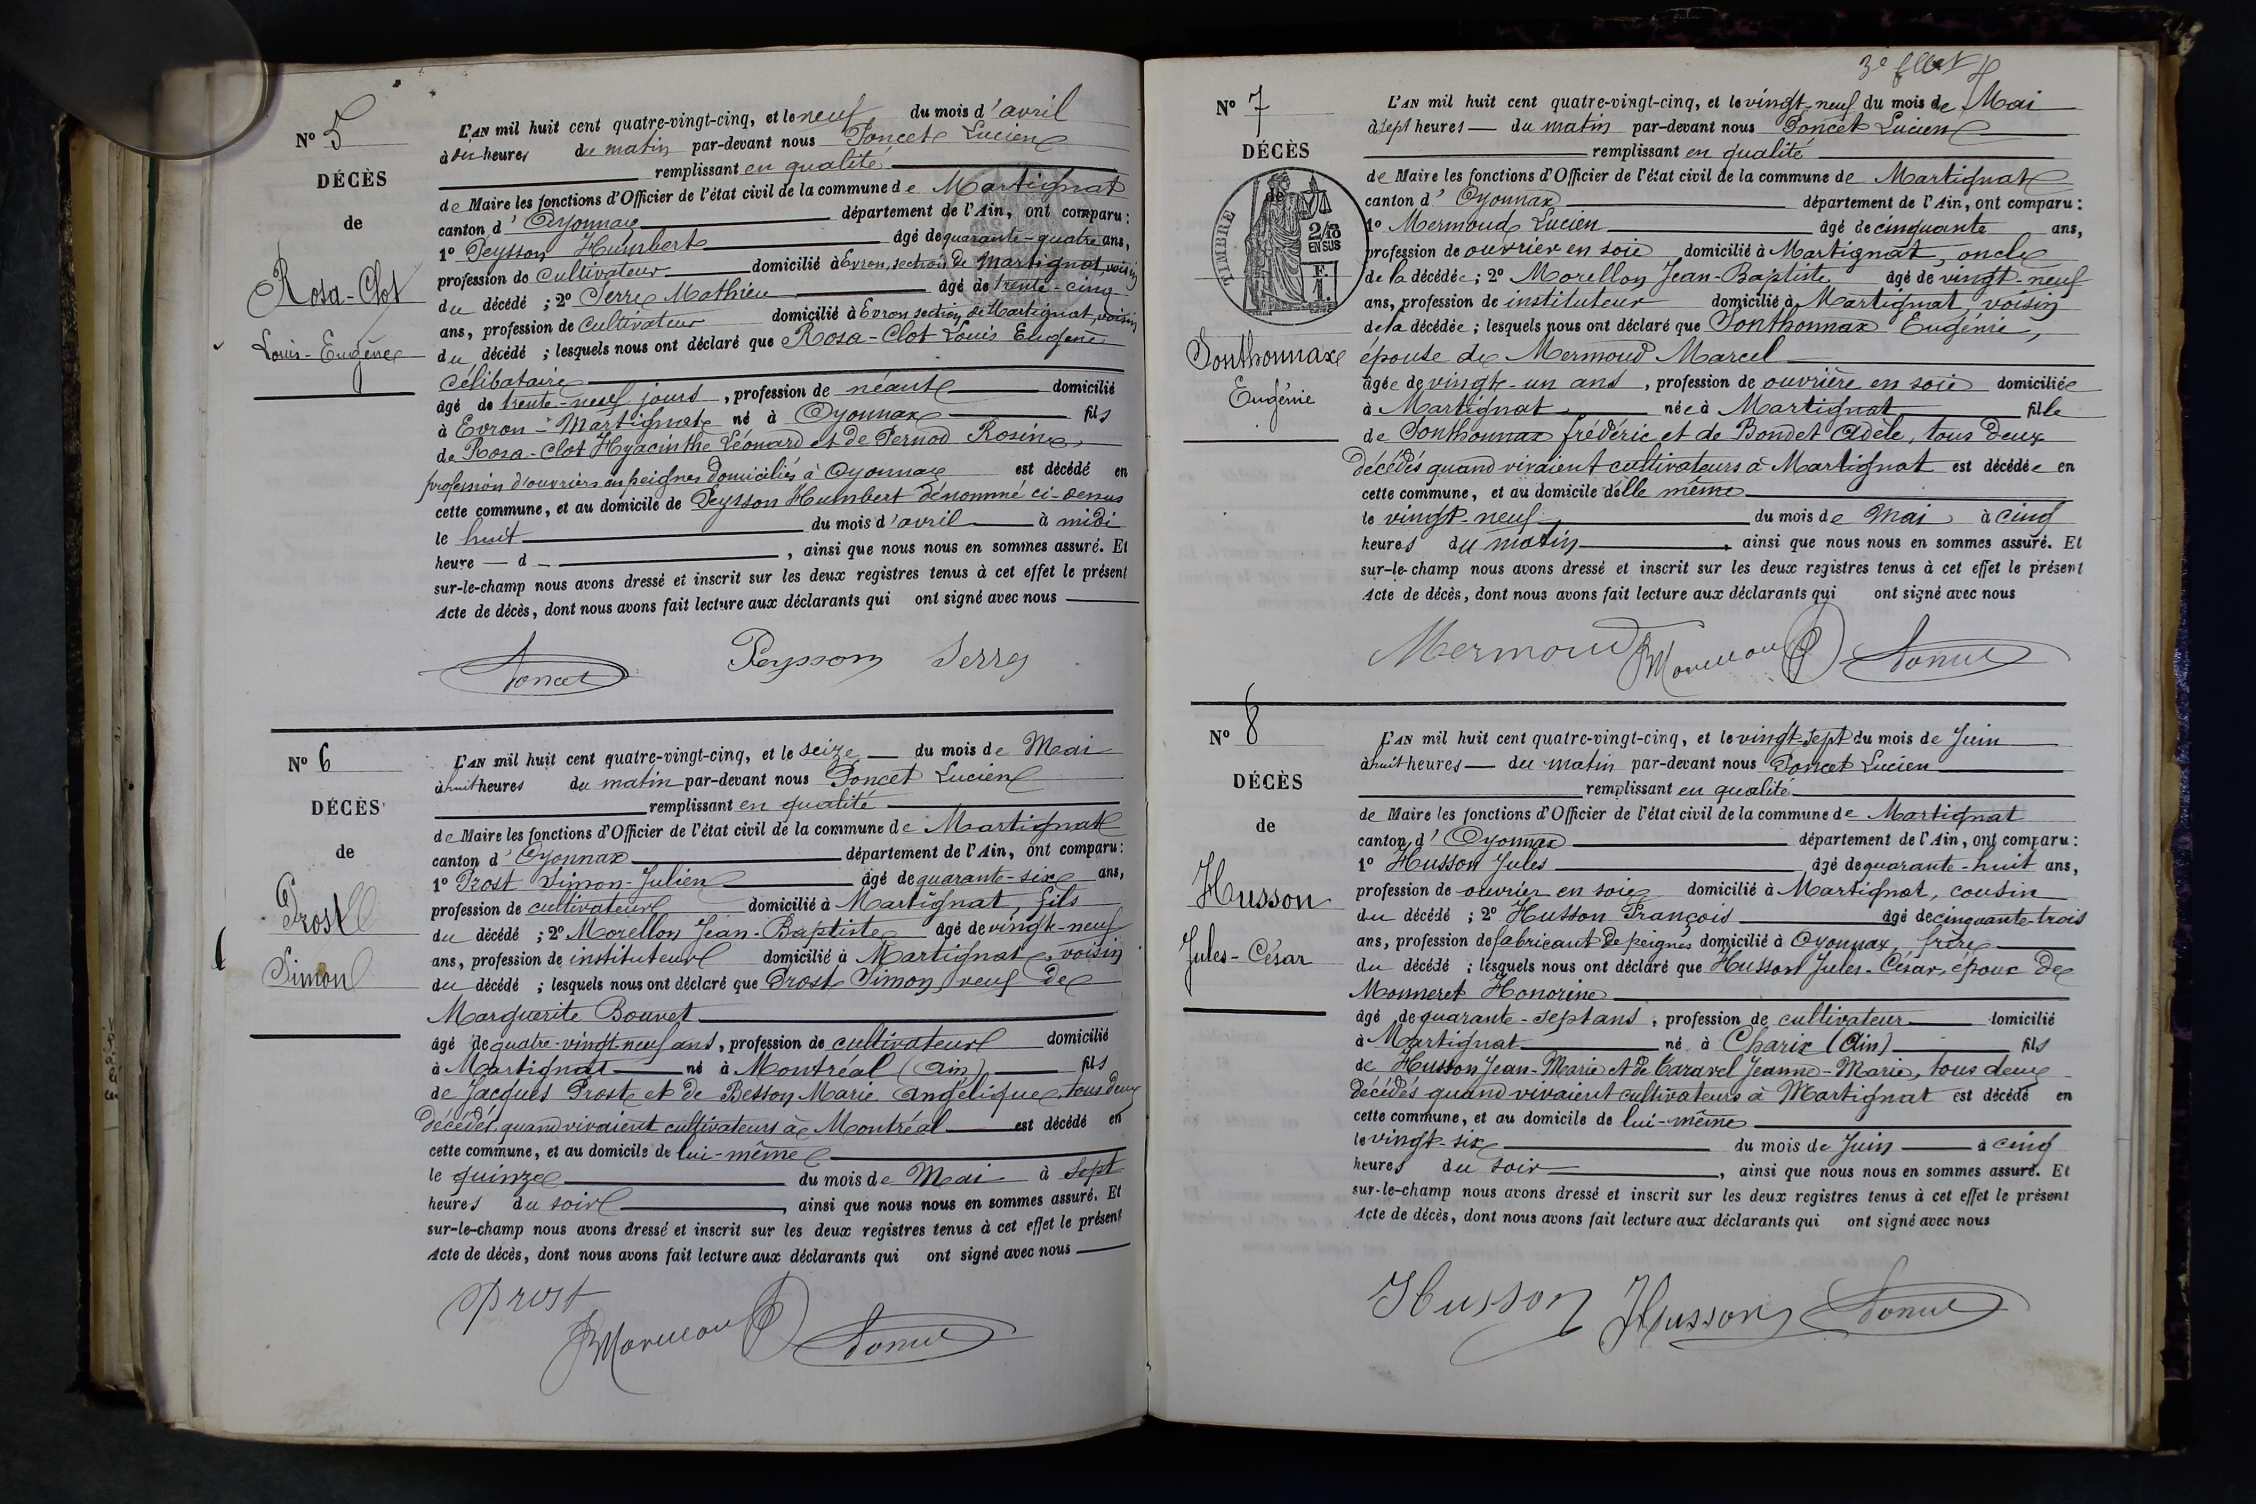 N° 5
DÉCÈS
de
Rosa-Clot
Louis-Eugène
L'AN mil huit cent quatre-vingt-cinq, et le neuf du mois d'avril
à dix heures du matin par-devant nous Poncet Lucien
remplissant en qualité
de Maire les fonctions d'Officier de l'état civil de la commune de Martignat
canton d'Oyonnax département de l'Ain, ont comparu :
1° Peysson Humbert âgé de quarante-quatre ans,
profession de cultivateur domicilié à Evron, section de Martignat, voisin
du décédé ; 2° Serre Mathieu âgé de trente-cinq
ans, profession de cultivateur domicilié à Evron section de Martignat, voisin
du décédé ; lesquels nous ont déclaré que Rosa-Clot Louis Eugène
célibataire
âgé de trente-neuf jours, profession de néant domicilié
à Evron-Martignat né à Oyonnax fils
de Rosa-Clot Hyacinthe Léonard et de Pernod Rosine,
profession d'ouvriers en peignes domiciliés à Oyonnax est décédé en
cette commune, et au domicile de Peysson Humbert dénommé ci-dessus
le huit du mois d'avril à midi
heure — d — , ainsi que nous nous en sommes assuré. Et
sur-le-champ nous avons dressé et inscrit sur les deux registres tenus à cet effet le présent
Acte de décès, dont nous avons fait lecture aux déclarants qui ont signé avec nous
Poncet Peysson Serre
N° 6
DÉCÈS
de
Prost
Simon
L'AN mil huit cent quatre-vingt-cinq, et le seize du mois de Mai
à huit heures du matin par-devant nous Poncet Lucien
remplissant en qualité
de Maire les fonctions d'Officier de l'état civil de la commune de Martignat
canton d'Oyonnax département de l'Ain, ont comparu :
1° Prost Simon-Julien âgé de quarante-six ans,
profession de cultivateur domicilié à Martignat, fils
du décédé ; 2° Morellon Jean-Baptiste âgé de vingt-neuf
ans, profession de instituteur domicilié à Martignat, voisin
du décédé ; lesquels nous ont déclaré que Prost Simon, veuf de
Marguerite Bouvet
âgé de quatre-vingt-neuf ans, profession de cultivateur domicilié
à Martignat né à Montréal (Ain) fils
de Jacques Prost et de Besson Marie Angélique, tous deux
décédés quand vivaient cultivateurs à Montréal est décédé en
cette commune, et au domicile de lui-même
le quinze du mois de Mai à sept
heures du soir, ainsi que nous nous en sommes assuré. Et
sur-le-champ nous avons dressé et inscrit sur les deux registres tenus à cet effet le présent
Acte de décès, dont nous avons fait lecture aux déclarants qui ont signé avec nous
Prost JBMorellon Poncet
N° 7
DÉCÈS
de
TIMBRE
2/10
EN SUS
F.
1.
Sonthonnax
Eugénie
L'AN mil huit cent quatre-vingt-cinq, et le vingt-neuf du mois de Mai
à sept heures — du matin par-devant nous Poncet Lucien
remplissant en qualité
de Maire les fonctions d'Officier de l'état civil de la commune de Martignat
canton d'Oyonnax département de l'Ain, ont comparu :
1° Mermoud Lucien âgé de cinquante ans,
profession de ouvrier en soie domicilié à Martignat, oncle
de la décédée ; 2° Morellon Jean-Baptiste âgé de vingt-neuf
ans, profession de instituteur domicilié à Martignat, voisin
de la décédée ; lesquels nous ont déclaré que Sonthonnax Eugénie,
épouse de Mermoud Marcel
âgée de vingt-un ans, profession de ouvrière en soie domiciliée
à Martignat née à Martignat fille
de Sonthonnax frédéric et de Bondet Adèle, tous deux
décédés quand vivaient cultivateurs à Martignat est décédée en
cette commune, et au domicile d'elle même
le vingt-neuf du mois de Mai à cinq
heures du matin, ainsi que nous nous en sommes assuré. Et
sur-le-champ nous avons dressé et inscrit sur les deux registres tenus à cet effet le présent
Acte de décès, dont nous avons fait lecture aux déclarants qui ont signé avec nous
Mermoud JBMorellon Poncet
N° 8
DÉCÈS
de
Husson
Jules-César
L'AN mil huit cent quatre-vingt-cinq, et le vingt-sept du mois de Juin
à huit heures — du matin par-devant nous Poncet Lucien
remplissant en qualité
de Maire les fonctions d'Officier de l'état civil de la commune de Martignat
canton d'Oyonnax département de l'Ain, ont comparu :
1° Husson Jules âgé de quarante-huit ans,
profession de ouvrier en soie domicilié à Martignat, cousin
du décédé ; 2° Husson François âgé de cinquante-trois
ans, profession de fabricant de peignes domicilié à Oyonnax, frère
du décédé ; lesquels nous ont déclaré que Husson Jules-César, époux de
Monneret Honorine
âgé de quarante-sept ans, profession de cultivateur domicilié
à Martignat né à Charix (Ain) fils
de Husson Jean-Marie et de Caravel Jeanne-Marie, tous deux
décédés quand vivaient cultivateurs à Martignat est décédé en
cette commune, et au domicile de lui-même
le vingt-six du mois de Juin à cinq
heures du soir, ainsi que nous nous en sommes assuré. Et
sur-le-champ nous avons dressé et inscrit sur les deux registres tenus à cet effet le présent
Acte de décès, dont nous avons fait lecture aux déclarants qui ont signé avec nous
Husson Husson Poncet